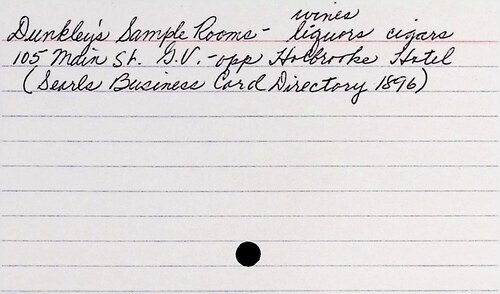 wines
Dunkley's Sample Rooms - liquors cigars
105 Main St. G.V. - opp Holbrooke Hotel
(Searls Business Card Directory 1896)